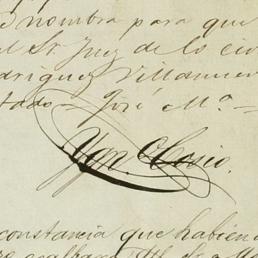 nombra para que
el Sr. Juez de lo civ
odriguez Villanuev
tado— José Ma. —
Ygn. Cosio.
constancia que habien